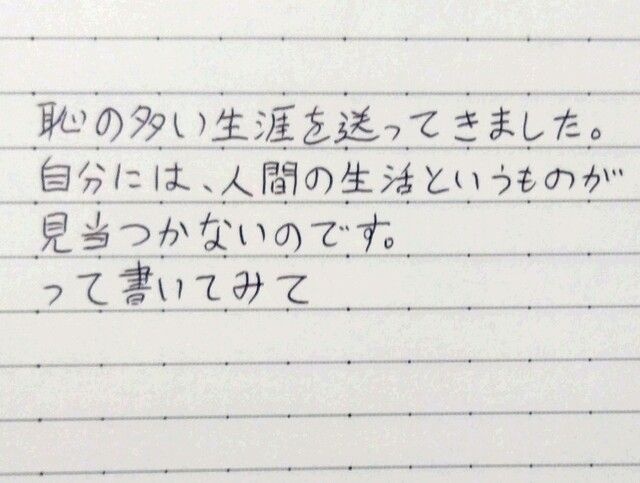 恥の多い生涯を送ってきました。
自分には、人間の生活というものが
見当つかないのです。
って書いてみて